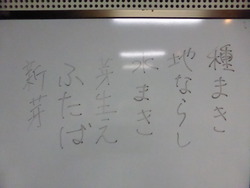 種まき
地ならし
水まき
芽生え
ふたば
新芽